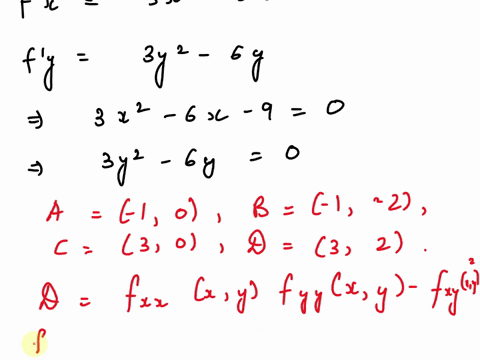 f'y = 3y² - 6y
⇒ 3x² - 6x - 9 = 0
⇒ 3y² - 6y = 0
A = (-1, 0), B = (-1, ~2),
C = (3, 0), D = (3, 2).
D = fxx (x, y) fyy (x, y) - fxy(x,y)²